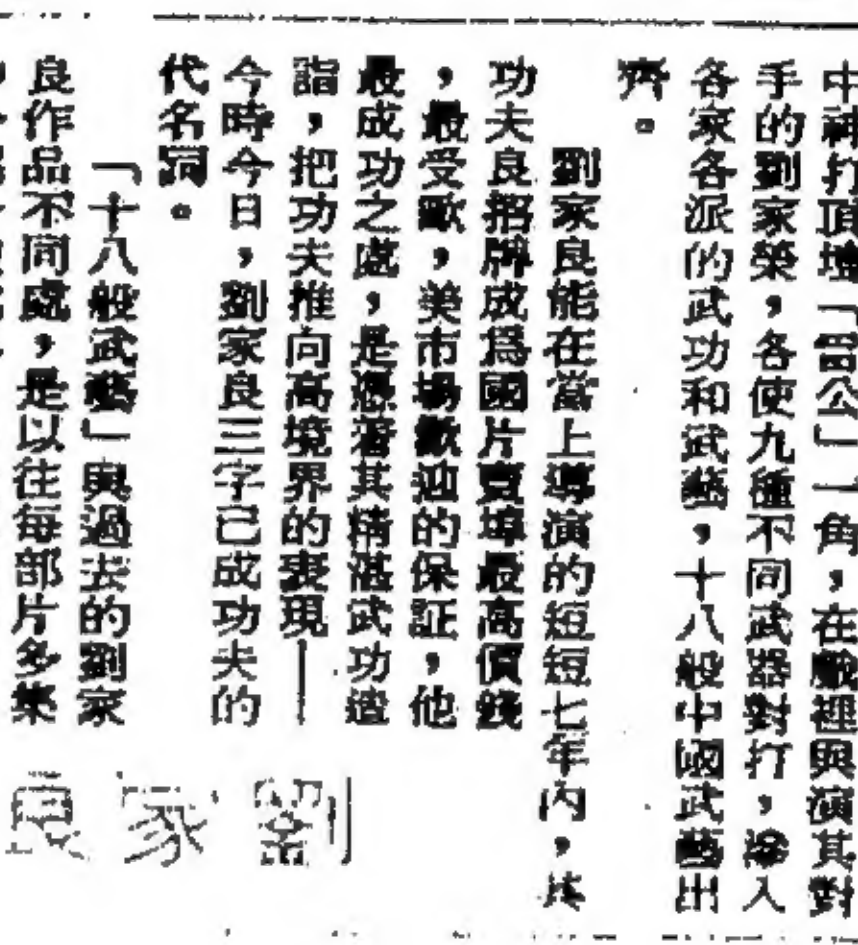 中神打頂壇「雷公」一角，在戲裡與演其對
手的劉家榮，各使九種不同武器對打，滲入
各家各派的武功和武藝，十八般中國武藝出
齊。
劉家良能在當上導演的短短七年內，其
功夫良招牌成爲國片賣埠最高價錢
，最受歐，美市場歡迎的保証，他
最成功之處，是憑著其精湛武功造
詣，把功夫推向高境界的表現——
今時今日，劉家良三字已成功夫的
代名詞。
「十八般武藝」與過去的劉家
良作品不同處，是以往每部片多集
劉家良